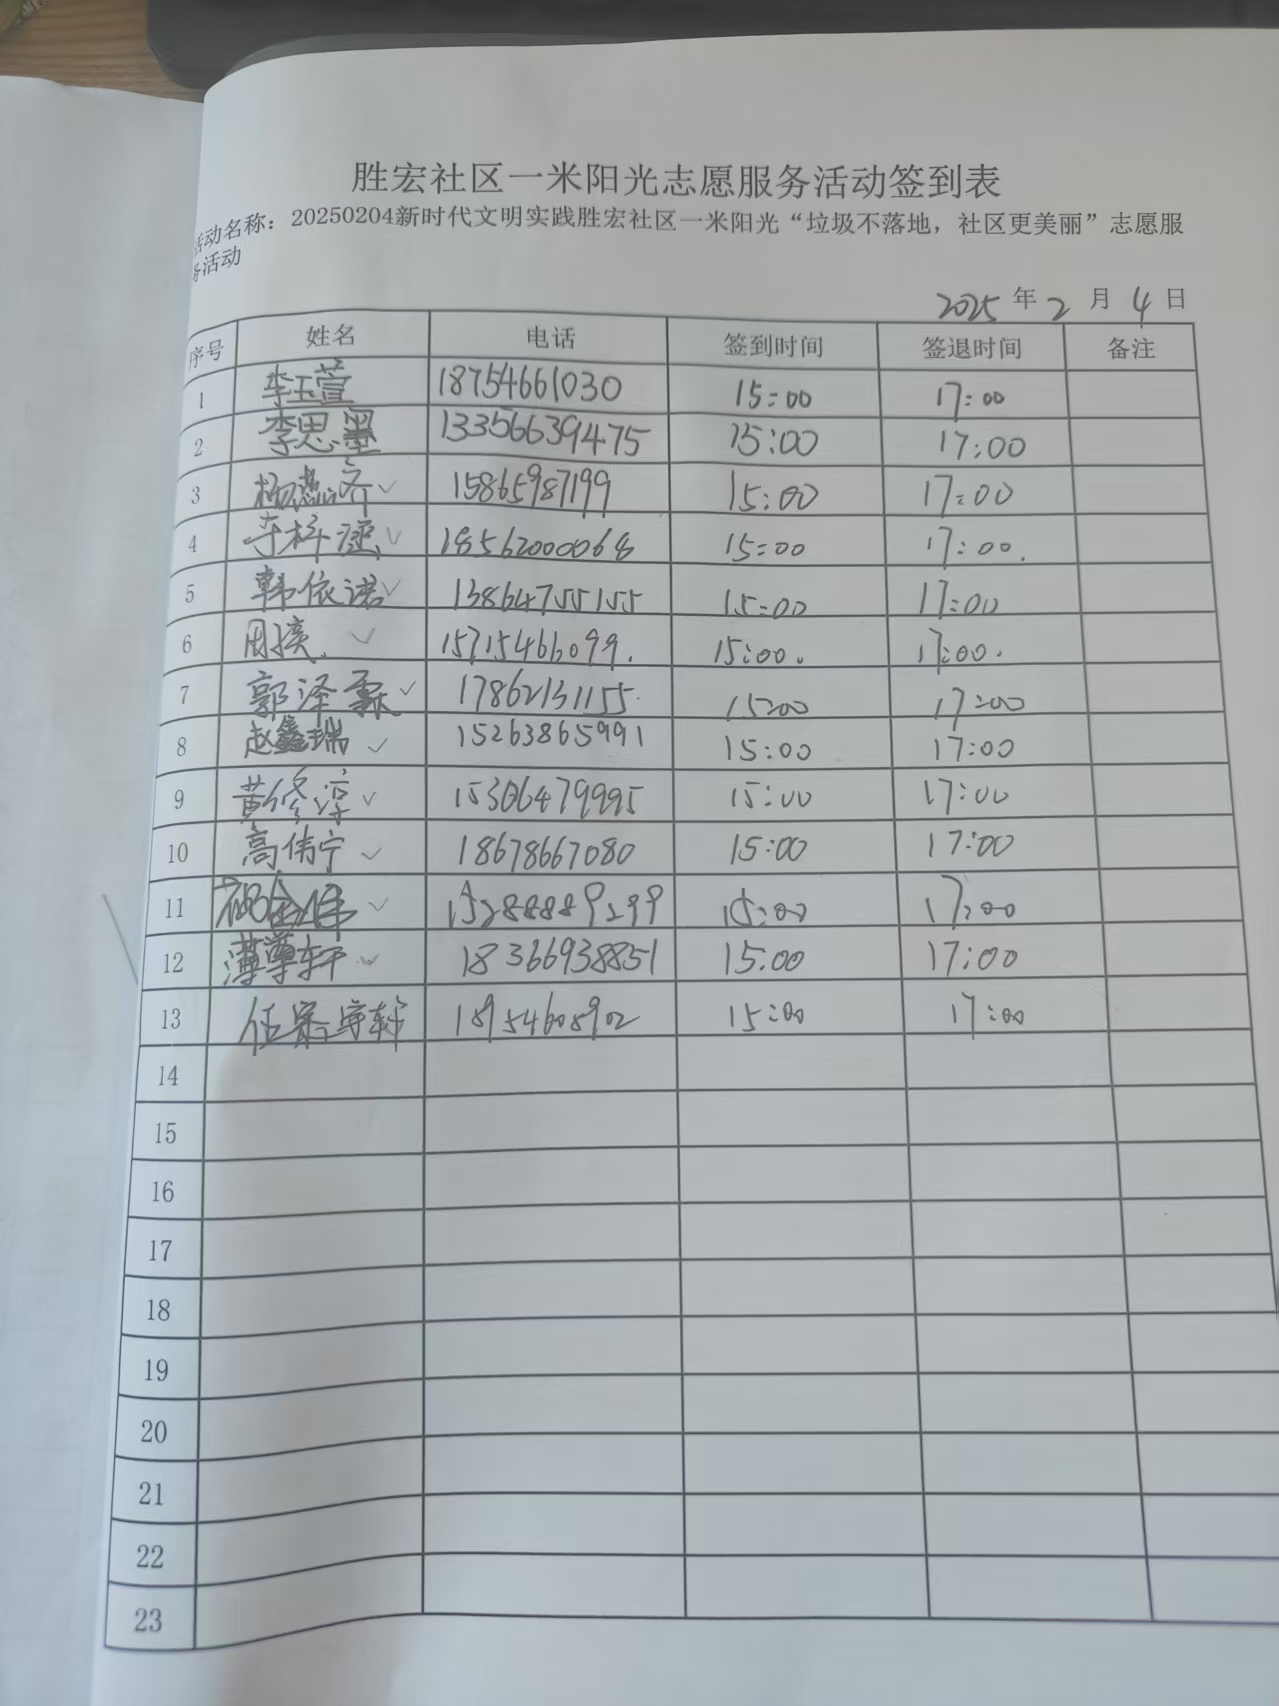 胜宏社区一米阳光志愿服务活动签到表
活动名称：20250204新时代文明实践胜宏社区一米阳光“垃圾不落地，社区更美丽”志愿服
务活动
2025 年 2 月 4 日
序号 姓名 电话 签到时间 签退时间 备注
1 李玉萱 18754661030 15:00 17:00
2 李思墨 13356639475 15:00 17:00
3 15865987199 15:00 17:00
4 18562000068 15:00 17:00.
5 韩依诺 13864755155 15:00 17:00
6 15715466099. 15:00. 17:00.
7 郭泽 17862131155 15:00 17:00
8 赵鑫瑞 15263865991 15:00 17:00
9 黄修淳 15306479995 15:00 17:00
10 高伟宁 18678667080 15:00 17:00
11 15288889299 15:00 17:00
12 18366938851 15:00 17:00
13 任 18954608902 15:00 17:00
14
15
16
17
18
19
20
21
22
23